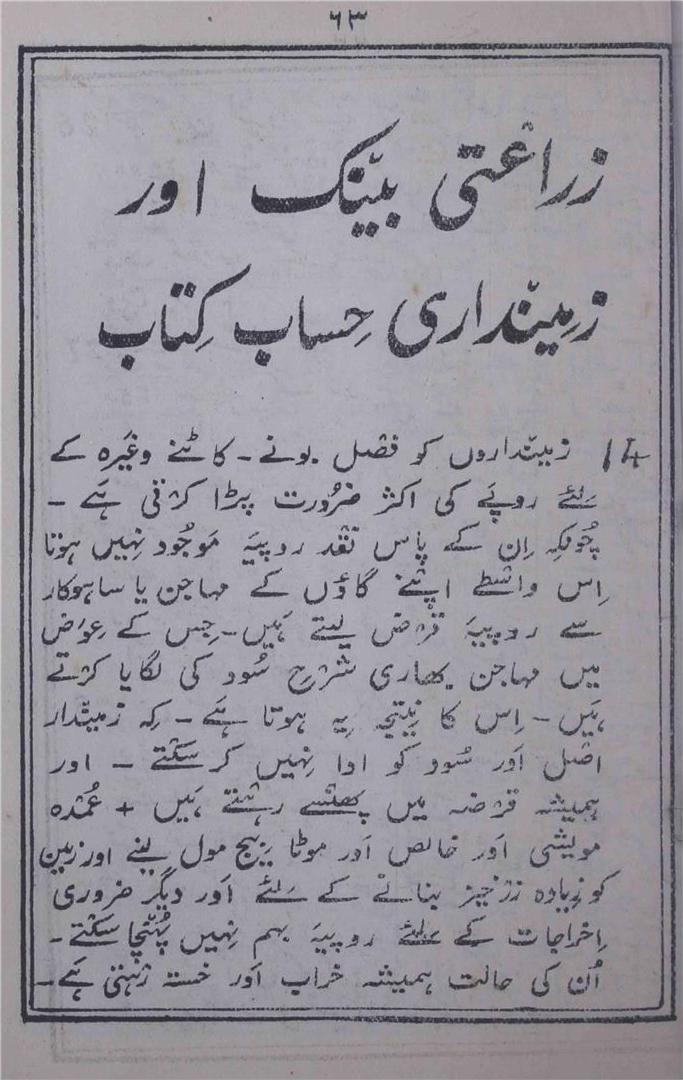 ۶۳
زراعتی بینک اور
زمینداری حِساب کِتاب
14 زمینداروں کو فصل بونے ـ کاٹنے وغیرہ کے
لئے روپے کی اکثر ضرُورت پڑا کرتی ہَے ـ
چُونکہ اِن کے پاس نقد روپیہ مَوجُود نہیں ہوتا
اِس واسطے اپنے گاؤں کے مہاجن یا ساہوکار
سے روپیہ قرض لیتے ہَیں ـ جِس کے عِوَض
میں مہاجن بھاری شرحِ سُود کی لگایا کرتے
ہَیں ـ اِس کا نتیجہ یہ ہوتا ہَے ـ کہ زمیندار
اصل اَور سُود کو ادا نہیں کر سکتے ـ اور
ہمیشہ قرضہ میں پھنسے رہتے ہَیں + عُمدہ
مویشی اَور خالص اَور موٹا بیج مول لینے اور زمین
کو زِیادہ زرخیز بنانے کے لئے اَور دیگر ضروری
اِخراجات کے لئے روپیہ بہم نہیں پُہنچا سکتے ـ
اُن کی حالت ہمیشہ خراب اَور خستہ رَہتی ہَے ـ